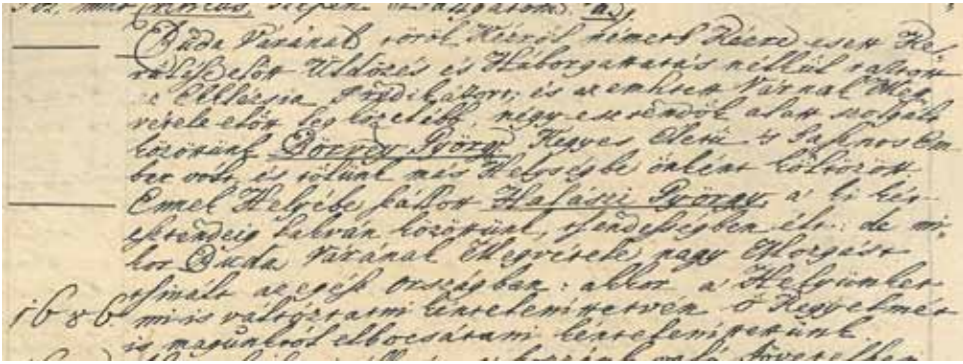 mint szépen
Buda Várának török Kézről német Kézre esett Ke-
rülisse előtt Üldözés és Háborgattatás nélkül tartott
az Ekklésia Prédikátort; és az említett Várnak Meg
vétele előtt leg közelebb négy esztendők alatt szolgált
közöttünk Dörvey György Kegyes életű és Em-
ber volt, és tőlünk más Helységbe önként költözött
Ennek Helyébe állott Halászi György, a' ki két
esztendeig lakván közöttünk, tsendességben élt: de mi-
kor Buda Várának Megvétele nagy Mozgást
tsinált az egész Országban: akkor a' Helyünket
1686 mi is változtatni kéntelenittetvén ő Kegyelmét
is magunktól elbocsátani kéntelenittettünk.